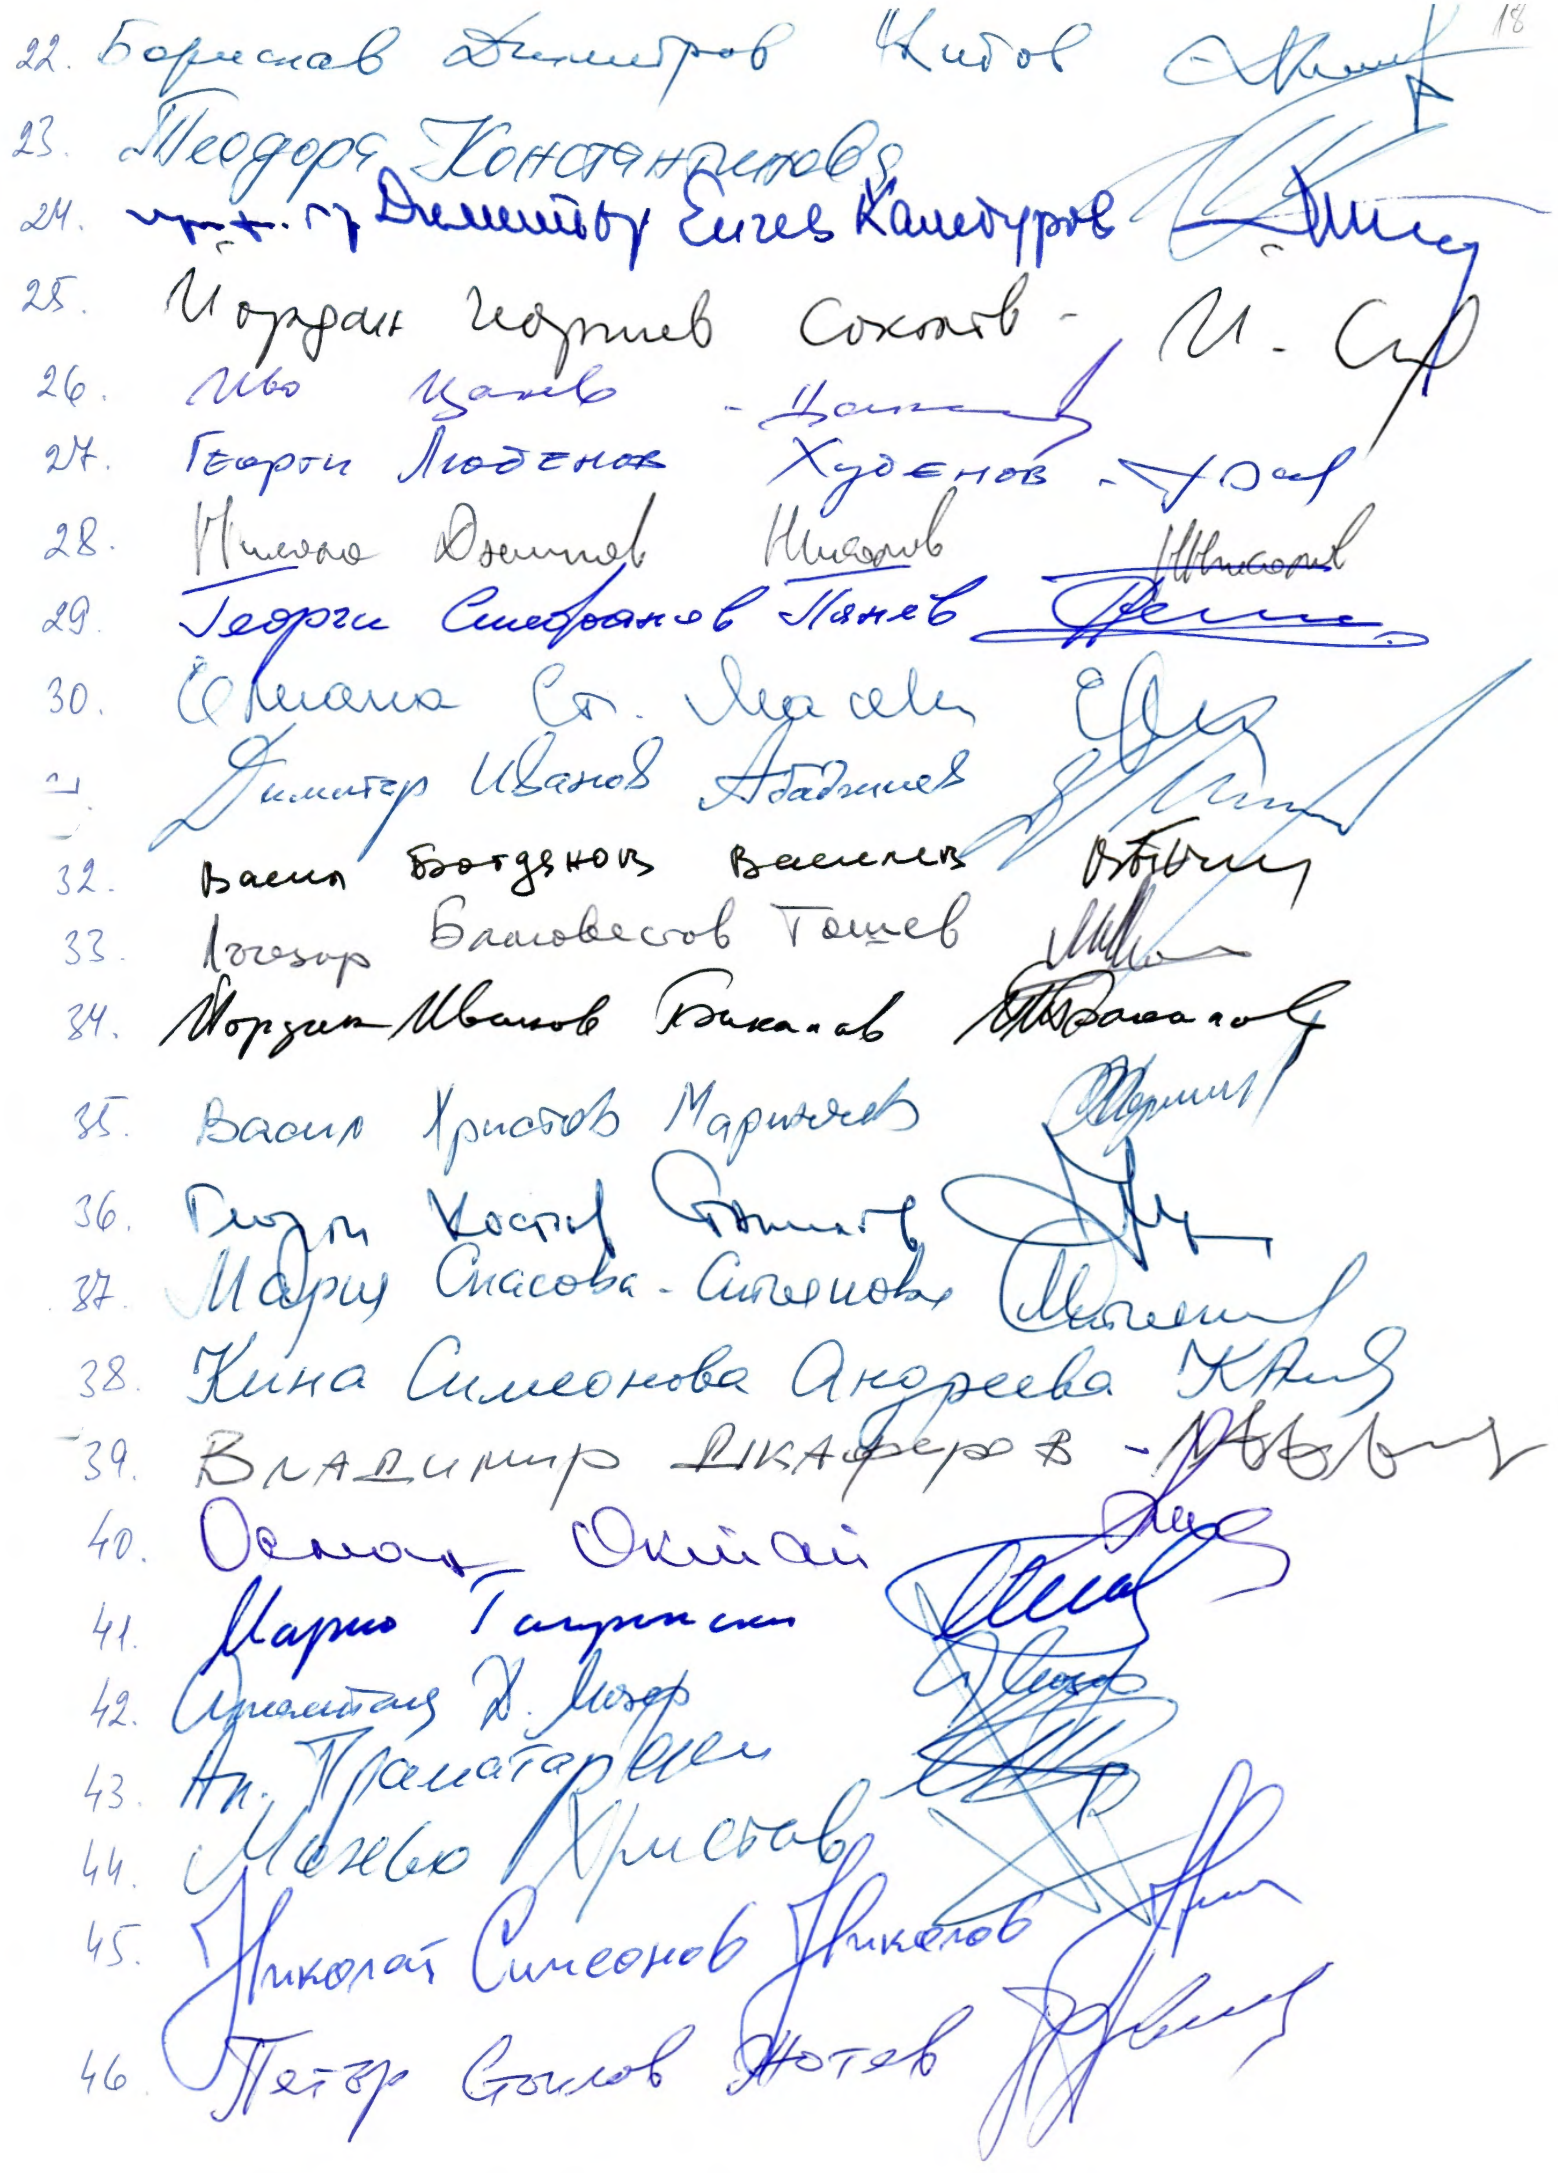 18
22. Борислав Димитров Китов
23. Теодора Константинова
24. Димитър Енчев Камбуров
25. Йордан Георгиев Соколов - Й. С
26. Иво Цанев -
27. Георги Любенов Худенов -
28. Никола Николов
29. Георги Стефанов Панев
30. Ст.
Димитър Иванов Абаджиев
32. Васил Богданов Василев
33. Лъчезар Благовестов Тошев
34. Йордан Иванов Бакалов
35. Васил Христов Маринчев
36. Георги Костов
37. Мария Спасова-Стоянова
38. Кина Симеонова Андреева
39. Владимир Джаферов -
40. Осман Октай
41. Марио Тагарински
42. Х.
43. Ат. Праматарски
44. Христов
45. Николай Симеонов Николов
46. Петър Стоилов Жотев